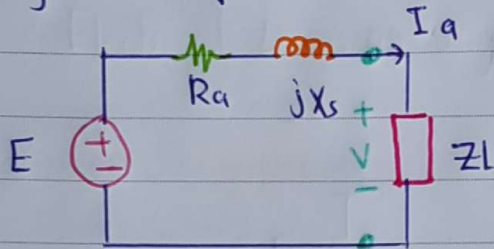 Ia
Ra
jXs
+
E
+
-
V
ZL
-